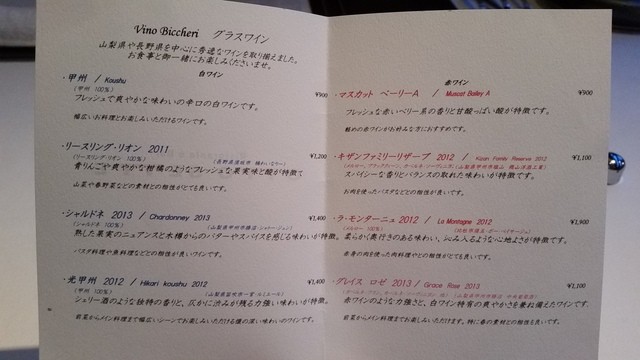 Vino Biccheri グラスワイン
山梨県や長野県を中心に秀逸なワインを取り揃えました。
お食事と御一緒にお楽しみくださいませ。
白ワイン
・甲州 / Koushu ¥900
(甲州 100%)
フレッシュで爽やかな味わいの辛口の白ワインです。
幅広いお料理とお楽しみいただけるワインです。
・リースリング・リオン 2011 ¥1,200
(リースリング・リオン 100%)
青りんごや爽やかな柑橘のようなフレッシュな果実味と酸が特徴で
山菜や春野菜などの素材との相性がとても良いです。
・シャルドネ 2013 / Chardonney 2013 ¥1,400
(シャルドネ 100%)
熟した果実のニュアンスと木樽からのバターやスパイスを感じる味わいが特徴。
パスタ料理や魚料理などとの相性が良いワインです。
・光甲州 2012 / Hikari koushu 2012 ¥1,400
(甲州 100%)
シェリー酒のような独特の香りと、仄かに渋みが残る力強い味わいが特徴。
前菜からメイン料理まで幅広いシーンでお楽しみいただける懐の深い味わいのワインです。
赤ワイン
・マスカット ベーリーA / Muscat Bailey A ¥900
フレッシュな赤いベリー系の香りと甘酸っぱい酸が特徴です。
軽めの赤ワインがお好みな方におすすめです。
・キザンファミリーリザーブ 2012 / Kizan Family Reserve 2012 ¥1,100
スパイシーな香りとバランスの取れた味わいが特徴です。
お肉を使ったパスタなどとの相性が良いです。
・ラ・モンターニュ 2012 / La Montagne 2012 ¥1,900
柔らかく奥行きのある味わい、沁み入るような心地よさが特徴です。
赤身の肉を使ったお肉料理やとの相性がとても良いです。
・グレイス ロゼ 2013 / Grace Rose 2013 ¥1,100
赤ワインのような力強さと、白ワイン特有の爽やかさを兼ね備えたワインです。
前菜からメインまでお楽しみいただけます。特に春の素材との相性が良いです。